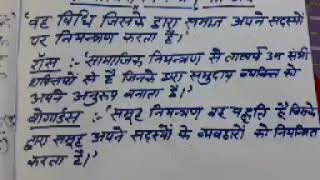 "वह विधि जिसके द्वारा समाज अपने सदस्यों
पर नियन्त्रण करता है।"
रॉस:- "सामाजिक नियन्त्रण से तात्पर्य उन सभी
शक्तियों से है जिनके द्वारा समुदाय व्यक्ति को
अपने अनुरूप बनाता है।"
बोगार्डस:- "समूह नियन्त्रण वह पद्धति है जिसके
द्वारा समूह अपने सदस्यों के व्यवहारों को नियमित
करता है।"